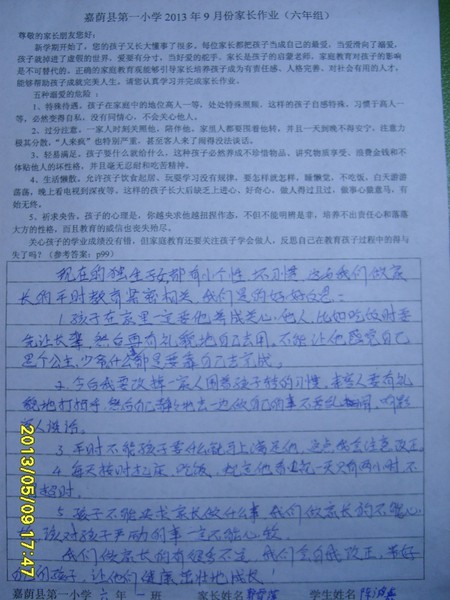 嘉荫县第一小学2013年9月份家长作业（六年组）
尊敬的家长朋友您好：
新学期开始了，您的孩子又长大懂事了很多，每位家长都把孩子当成自己的最爱，当爱滑向了溺爱，
孩子就掉进了虚假的世界。爱要有分寸，当好爱的舵手，家长是孩子的启蒙老师，家庭教育对孩子的影响
是不可替代的。正确的家庭教育观能够引导家长培养孩子成为有责任感、人格完善、对社会有用的人才，
能够帮助孩子成就完美人生。请您认真学习并完成家长作业。
五种溺爱的危险：
1、特殊待遇。孩子在家庭中的地位高人一等，处处特殊照顾。这样的孩子自感特殊，习惯于高人一
等，必然变得自私，没有同情心，不会关心他人。
2、过分注意。一家人时刻关照他，陪伴他。家里人都要围着他转，并且一天到晚不得安宁，注意力
极其分散，“人来疯”也特别严重，甚至客人来了闹得没法谈话。
3、轻易满足。孩子要什么就给什么，这种孩子必然养成不珍惜物品、讲究物质享受、浪费金钱和不
体贴他人的坏性格，并且毫无忍耐和吃苦精神。
4、生活懒散。允许孩子饮食起居、玩耍学习没有规律，要怎样就怎样，睡懒觉，不吃饭，白天游游
荡荡，晚上看电视到深夜等。这样的孩子长大后缺乏上进心、好奇心，做人得过且过，做事心猿意马，有
始无终。
5、祈求央告。孩子的心理是，你越央求他越扭捏作态，不但不能明辨是非，培养不出责任心和落落
大方的性格，而且教育的威信也丧失殆尽。
关心孩子的学业成绩没有错，但家庭教育还要关注孩子学会做人，反思自己在教育孩子过程中的得与
失了吗？（参考答案：p99）
现在的独生子女都有小个性，不习惯，这与我们做家
长的平时教育紧密相关，我们是的好好反思：
1、孩子在家里一定要他养成关心他人，比如吃饭时要
先让长辈，然后再有礼貌地自己去用。不能让他感觉自己
是个公主，少爷什么都是要靠自己去完成。
2、今后我要改掉一家人围着孩子转的习惯，来客人要有礼
貌地打招呼，然后自己静静地去一边做自己的事不要乱闹，
人谈话。
3、平时不能孩子要什么就马上满足他，这点我会注意改正。
4、每天按时起床、吃饭，规定他看电视一天只有两小时，不
超时。
5、孩子不能央求家长做什么事，我们做家长的不能心
软，该对孩子严格的事一定不能心软。
我们做家长的有很多不足，我们会自我改正，带好
的孩子，让他们健康茁壮地成长！
嘉荫县第一小学 六 年 一 班 家长姓名 学生姓名
2013/05/09 17:47